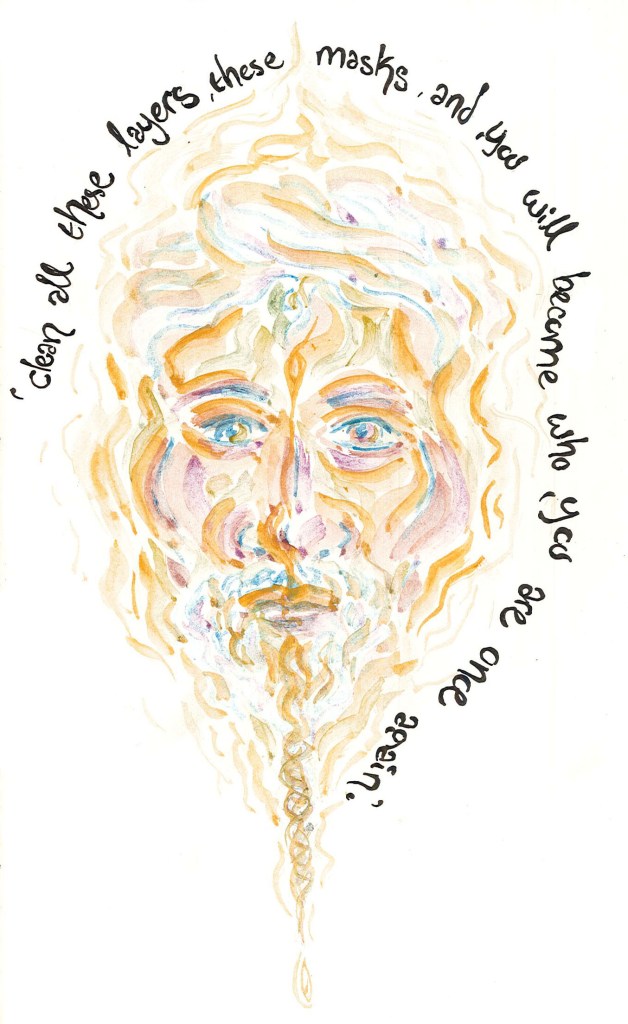 'clean all these layers, these masks, and you will become who you are once again.'